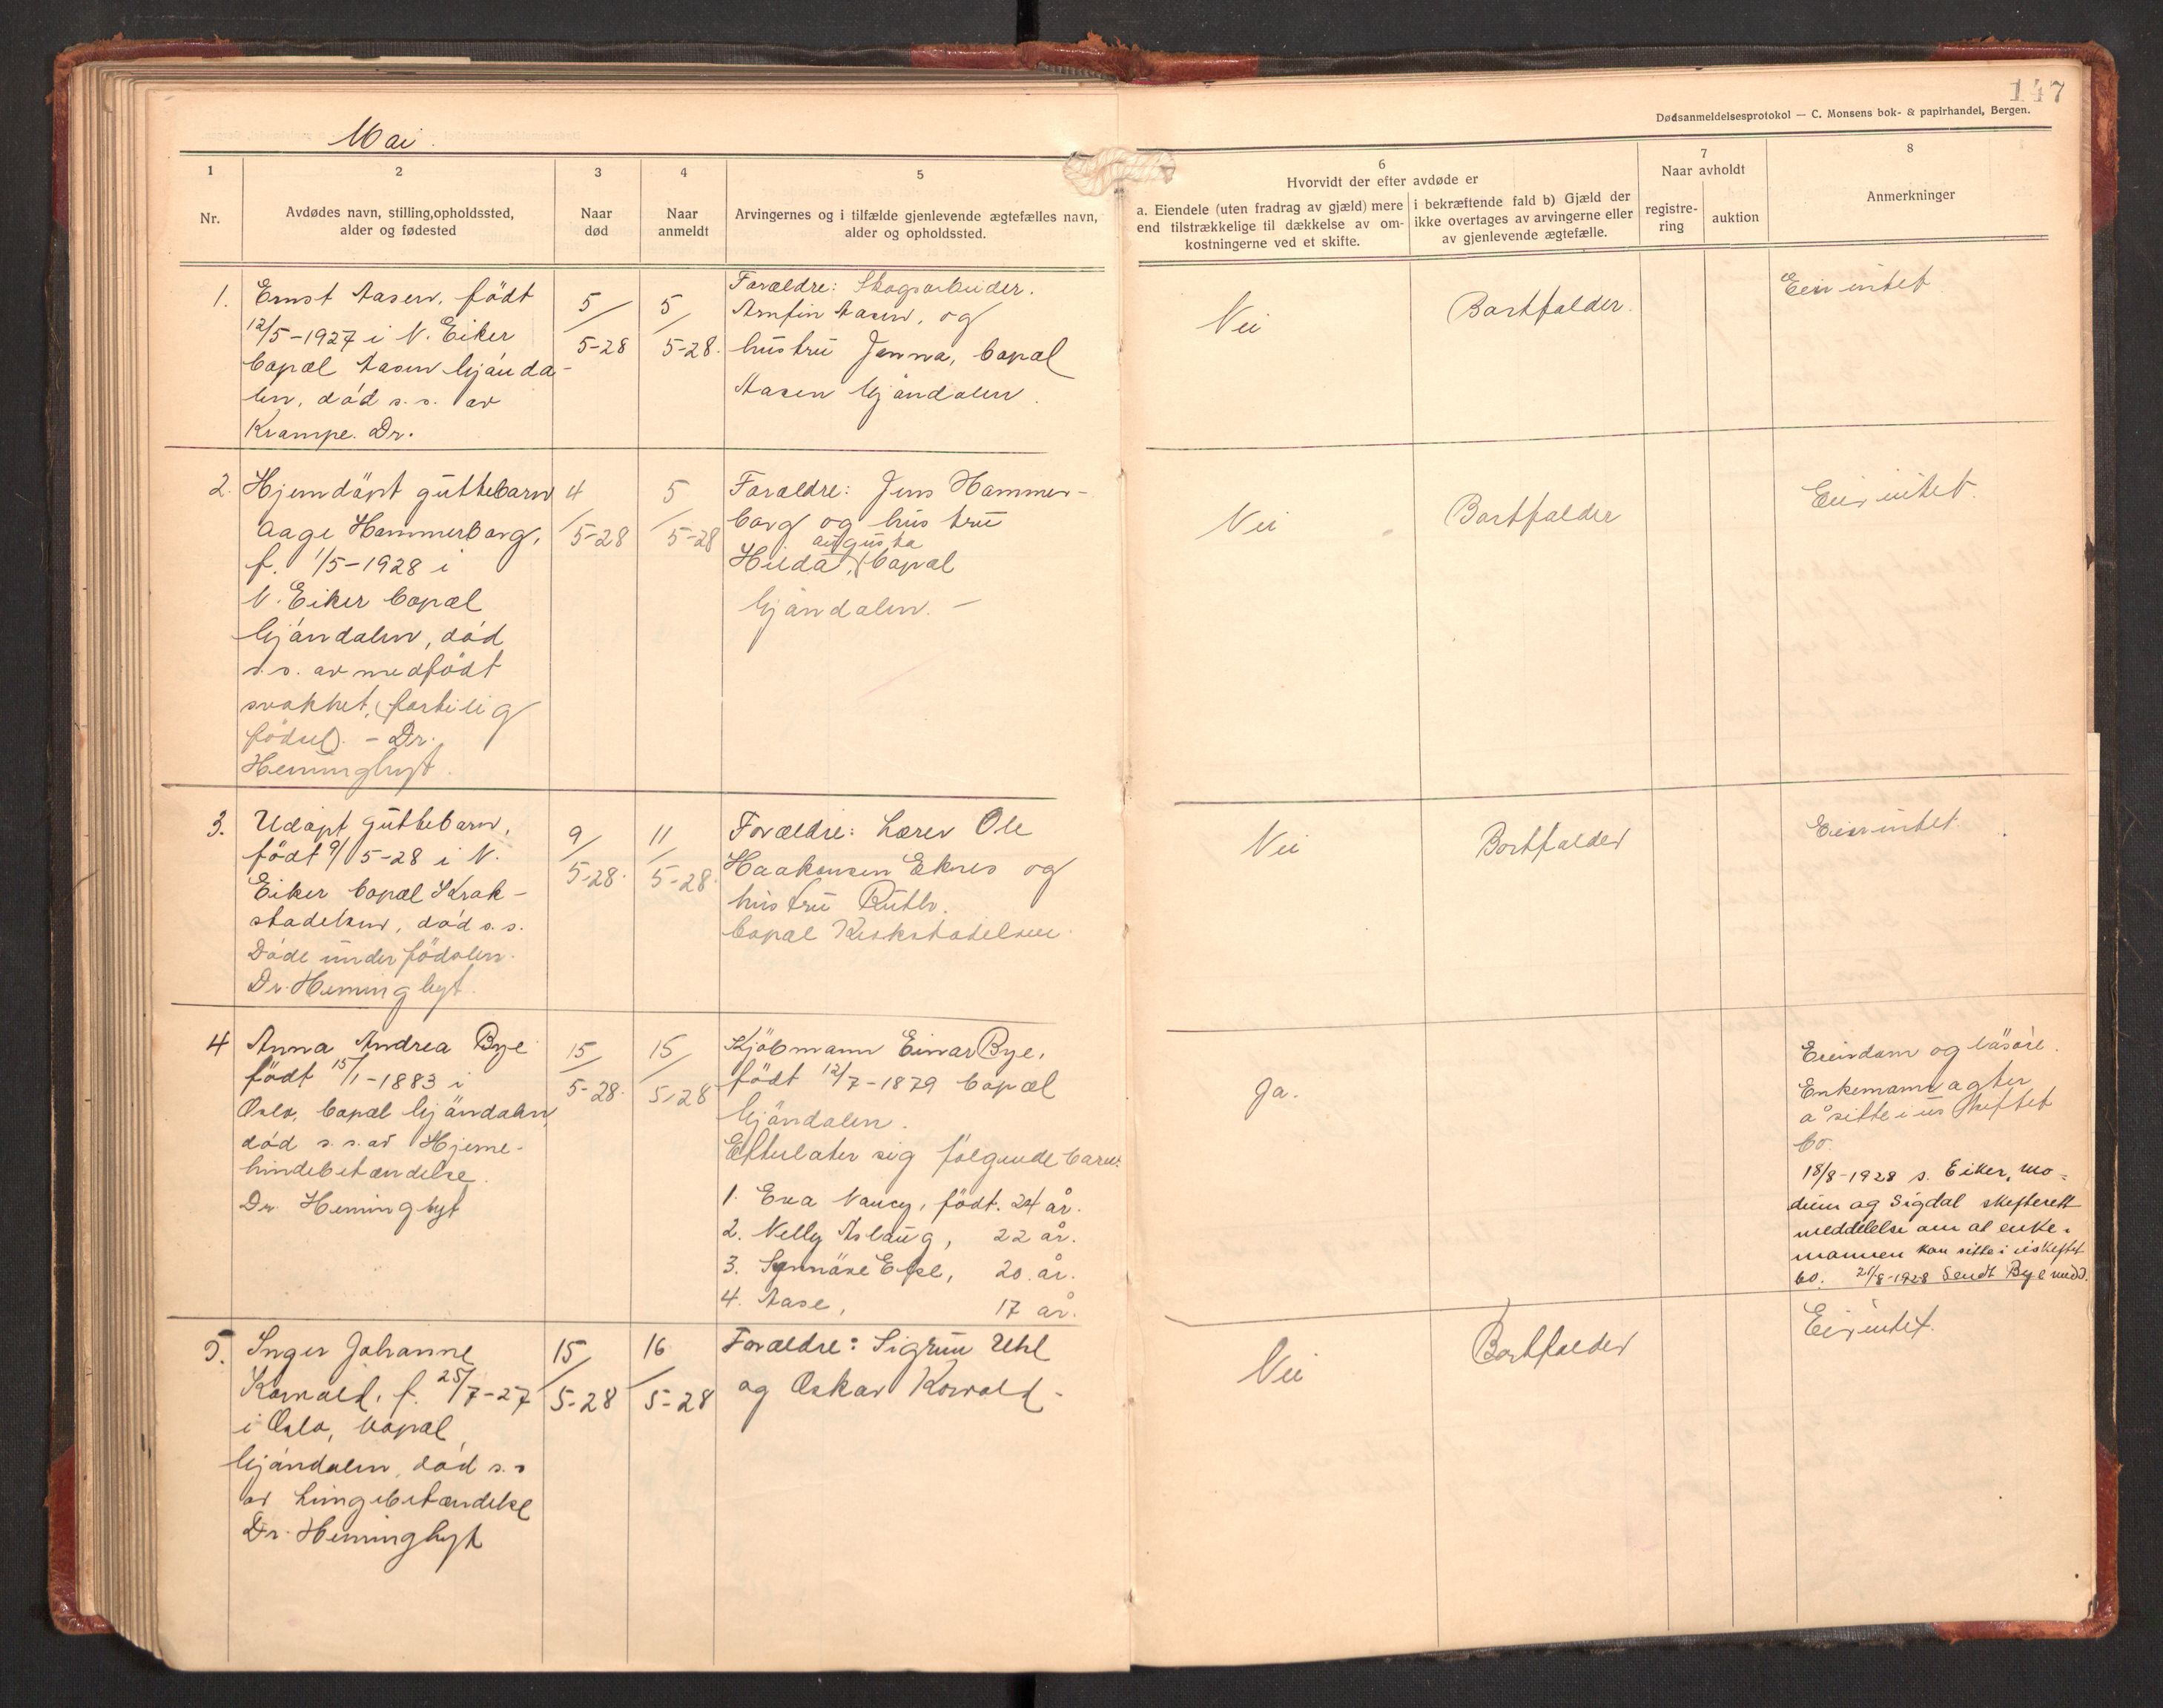 147
Dødsanmeldelsesprotokol — C. Monsens bok- & papirhandel, Bergen.
Mai.
1
Nr.
2
Avdødes navn, stilling, opholdssted,
alder og fødested
3
Naar
død
4
Naar
anmeldt
5
Arvingernes og i tilfælde gjenlevende ægtefælles navn,
alder og opholdssted.
6
Hvorvidt der efter avdøde er
a. Eiendele (uten fradrag av gjæld) mere
end tilstrækkelige til dækkelse av om-
kostningerne ved et skifte.
i bekræftende fald b) Gjæld der
ikke overtages av arvingerne eller
av gjenlevende ægtefælle.
7
Naar avholdt
registre-
ring
auktion
8
Anmerkninger
1.
Ernst Aasen, født
12/5-1927 i N. Eiker
bopæl Aasen Mjønda-
len, død s. s. av
Krampe. Dr.
5/5-28
5/5-28.
Forældre: Skogsarbeider.
Arnfin Aasen, og
hustru Jenna, bopæl
Aasen Mjøndalen.
Nei
Bortfalder.
Eier intet
2.
Hjemdøpt guttebarn
Aage Hammerborg,
f. 1/5-1928 i
N. Eiker bopæl
Mjøndalen, død
s.s. av medfødt
svakhet, (fortilig
fødsel). - Dr.
Heminghyt.
4/5-28
5/5-28
Forældre: Jens Hammer-
borg og hustru
Augusta
Hilda, bopæl
Mjøndalen. -
Nei
Bortfalder
Eier intet.
3.
Udøpt guttebarn,
født 9/5-28 i N.
Eiker bopæl Krok-
stadelven, død s. s.
Døde under fødslen.
Dr. Heminghyt.
9/5-28.
11/5-28.
Forældre: Lærer Ole
Haakonsen Eknes og
hustru Ruth.
bopæl Krokstadelven.
Nei
Bortfalder
Eier intet.
4
Anna Andrea Bye
født 15/1-1883 i
Oslo, bopæl Mjøndalen,
død s. s. av Hjerne-
hindebetændelse.
Dr. Heminghyt
15/5-28.
15/5-28
Kjøbmann Einar Bye,
født 12/7-1879 bopæl
Mjøndalen.
Efterlater sig følgende barn:
1. Eva Nancy, født. 24 år.
2. Nelly Aslaug, 22 år.
3. Synnøve Else, 20 år.
4. Aase, 17 år.
Ja.
Eiendom og løsøre.
Enkemann agter
å sitte i uskiftet
bo.
18/8-1928 s. Eiker, Mo-
dum og Sigdal skifterett
meddelelse om at enke-
mannen kan sitte i uskiftet
bo. 21/8-1928 Sendt Bye medd.
5.
Inger Johanne
Korvald, f. 25/7-27
i Oslo, bopæl
Mjøndalen, død s. s
av Lungebetændelse
Dr. Heminghyt
15/5-28
16/5-28
Forældre: Sigrun Uhl
og Oskar Korvald -
Nei
Bortfalder
Eier intet.